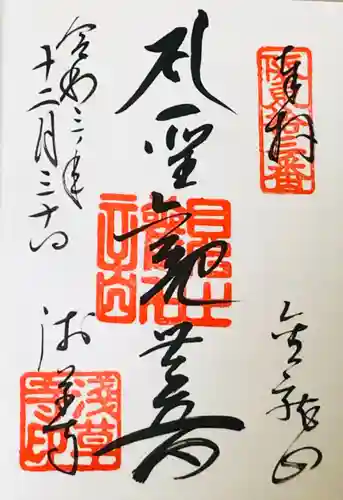 奉拝
坂東拾三番
金龍山
聖観世音
令和三年
十二月三十日
浅草寺
浅草寺印